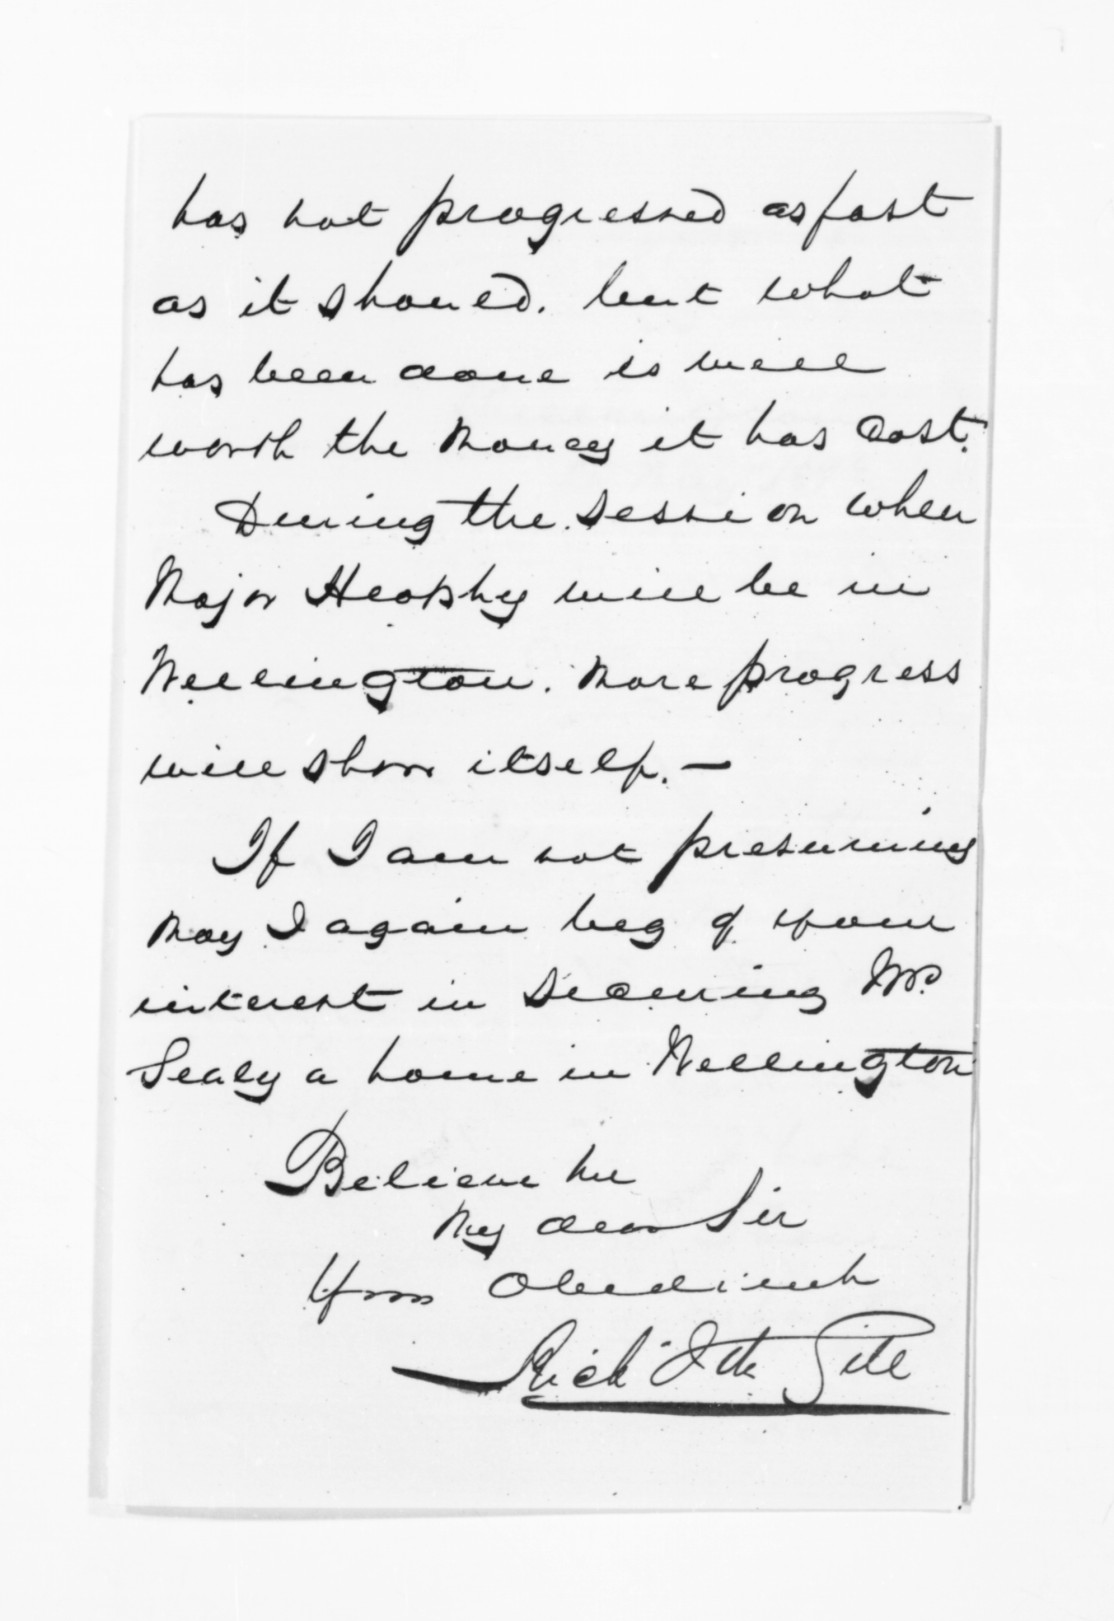 has not progressed as fast
as it should. but what
has been done is well
worth the money it has cost.
During the Session when
Major Heaphy will be in
Wellington. more progress
will show itself. —
If I am not presuming
may I again beg of your
interest in securing Mr
Sealy a home in Wellington
Believe me
My dear Sir
Yrs Obedient
Rich Jth Gill